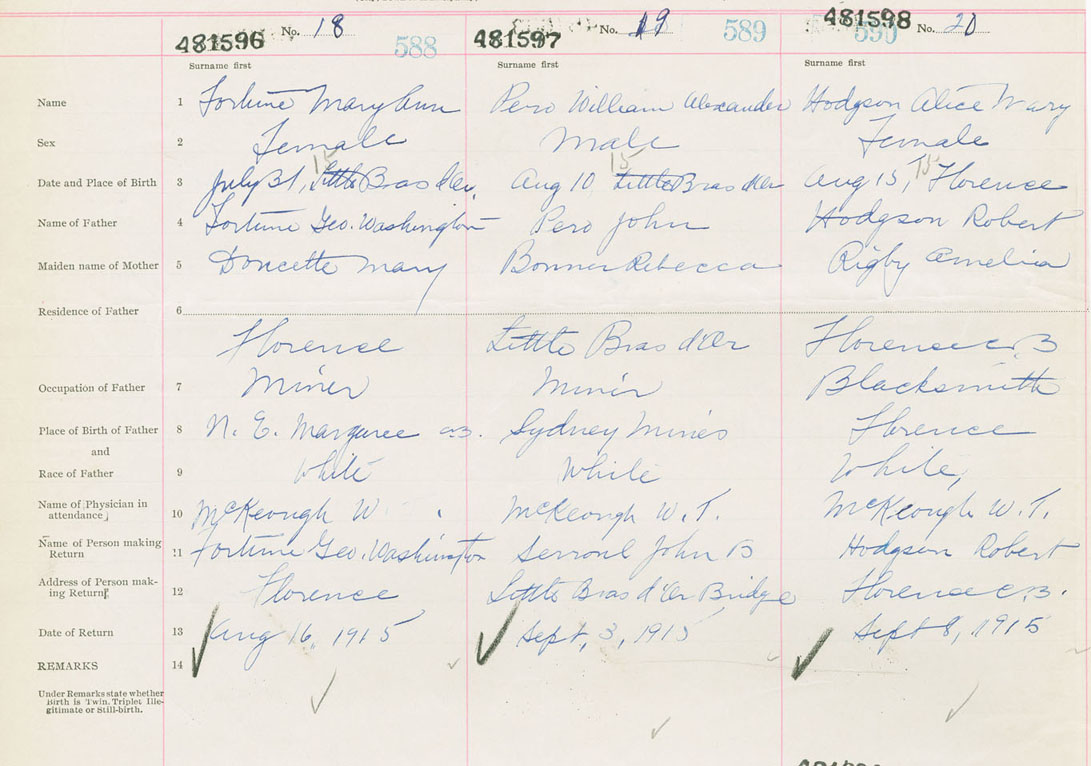 481596 No. 18 588 481597 No. 19 589 481598 No. 20 590
Surname first Surname first Surname first
Name 1 Fortune Mary Ann Pero William Alexander Hodgson Alice Mary
Sex 2 Female Male Female
15 15 15
Date and Place of Birth 3 July 31, Little Bras d'Or, Aug 10, Little Bras d'Or Aug 15, Florence
Name of Father 4 Fortune Geo. Washington Pero John Hodgson Robert
Maiden name of Mother 5 Doucette Mary Bonner Rebecca Rigby Amelia
Residence of Father 6
Florence Little Bras d'Or Florence C.B
Occupation of Father 7 Miner Miner Blacksmith
Place of Birth of Father 8 N. E. Margaree C.B. Sydney Mines Florence
and
Race of Father 9 White White White,
Name of Physician in
attendance 10 McKeough W. McKeough W. T. McKeough W. T.
Name of Person making
Return 11 Fortune Geo. Washington John B Hodgson Robert
Address of Person mak-
ing Return 12 Florence Little Bras d'Or Bridge Florence C.B.
Date of Return 13 Aug 16, 1915 Sept, 3, 1915 Sept 8, 1915
REMARKS 14
Under Remarks state whether
Birth is Twin, Triplet Ille-
gitimate or Still-birth.